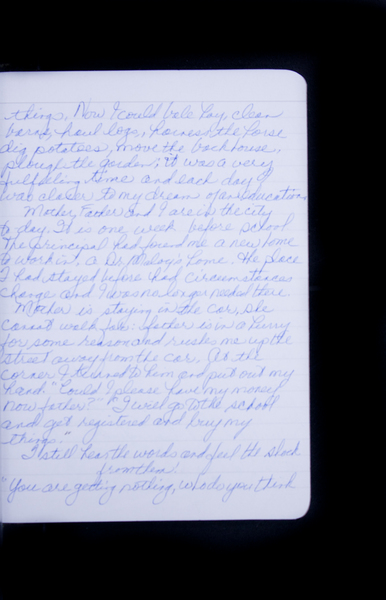 things, Now I could bale hay, clean
barns, haul logs, harness the horse
dig potatoes, move the backhouse,
plough the garden; it was a very
fulfilling time and each day I
was closer to my dream of an education
Mother, Father and I are in the city
to day. It is one week before school
The principal had found me a new home
to work in, a Dr. Meloy's home. The place
I had stayed before had circumstances
change and I was no longer needed there.
Mother is staying in the car, she
cannot walk far: father is in a hurry
for some reason and rushes me up the
street away from the car. At the
corner I turned to him and put out my
hand. "Could I please have my money
now father?" "I will go to the school
and get registered and buy my
things."
I still hear the words and feel the shock
from them.
"You are getting nothing, who do you think